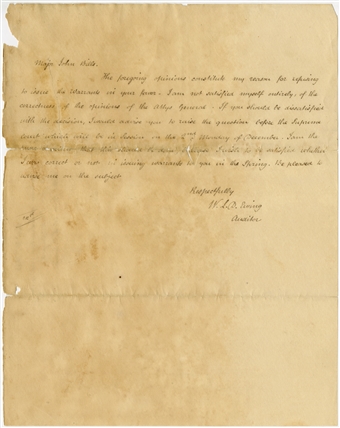 Major John Dils.
The foregoing opinions constitute my reason for refusing
to issue the Warrants in your favor. I am not satisfied myself entirely, of the
correctness of the opinions of the Attys General. If you should be dissatisfied
with the decision, I would advise you to raise the question before the Supreme
Court which will be in session on the 2nd Monday of December. I am the
more anxious that this should be done because I wish to be satisfied whether
I was correct or not in issuing warrants to you in the Spring. Be pleased to
write me on the subject.
Respectfully
W. L. D. Ewing
Auditor